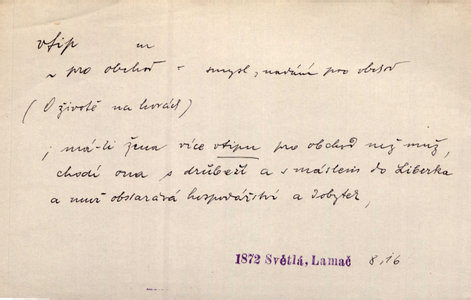 vtip m
~ pro obchod = smysl, nadání pro obchod
(O životě na horách)
; má-li žena více vtipu pro obchod než muž,
chodí ona s drůbeží a s máslem do Liberka
a muž obstarává hospodářství a dobytek,
1872 Světlá, Lamač 8,16